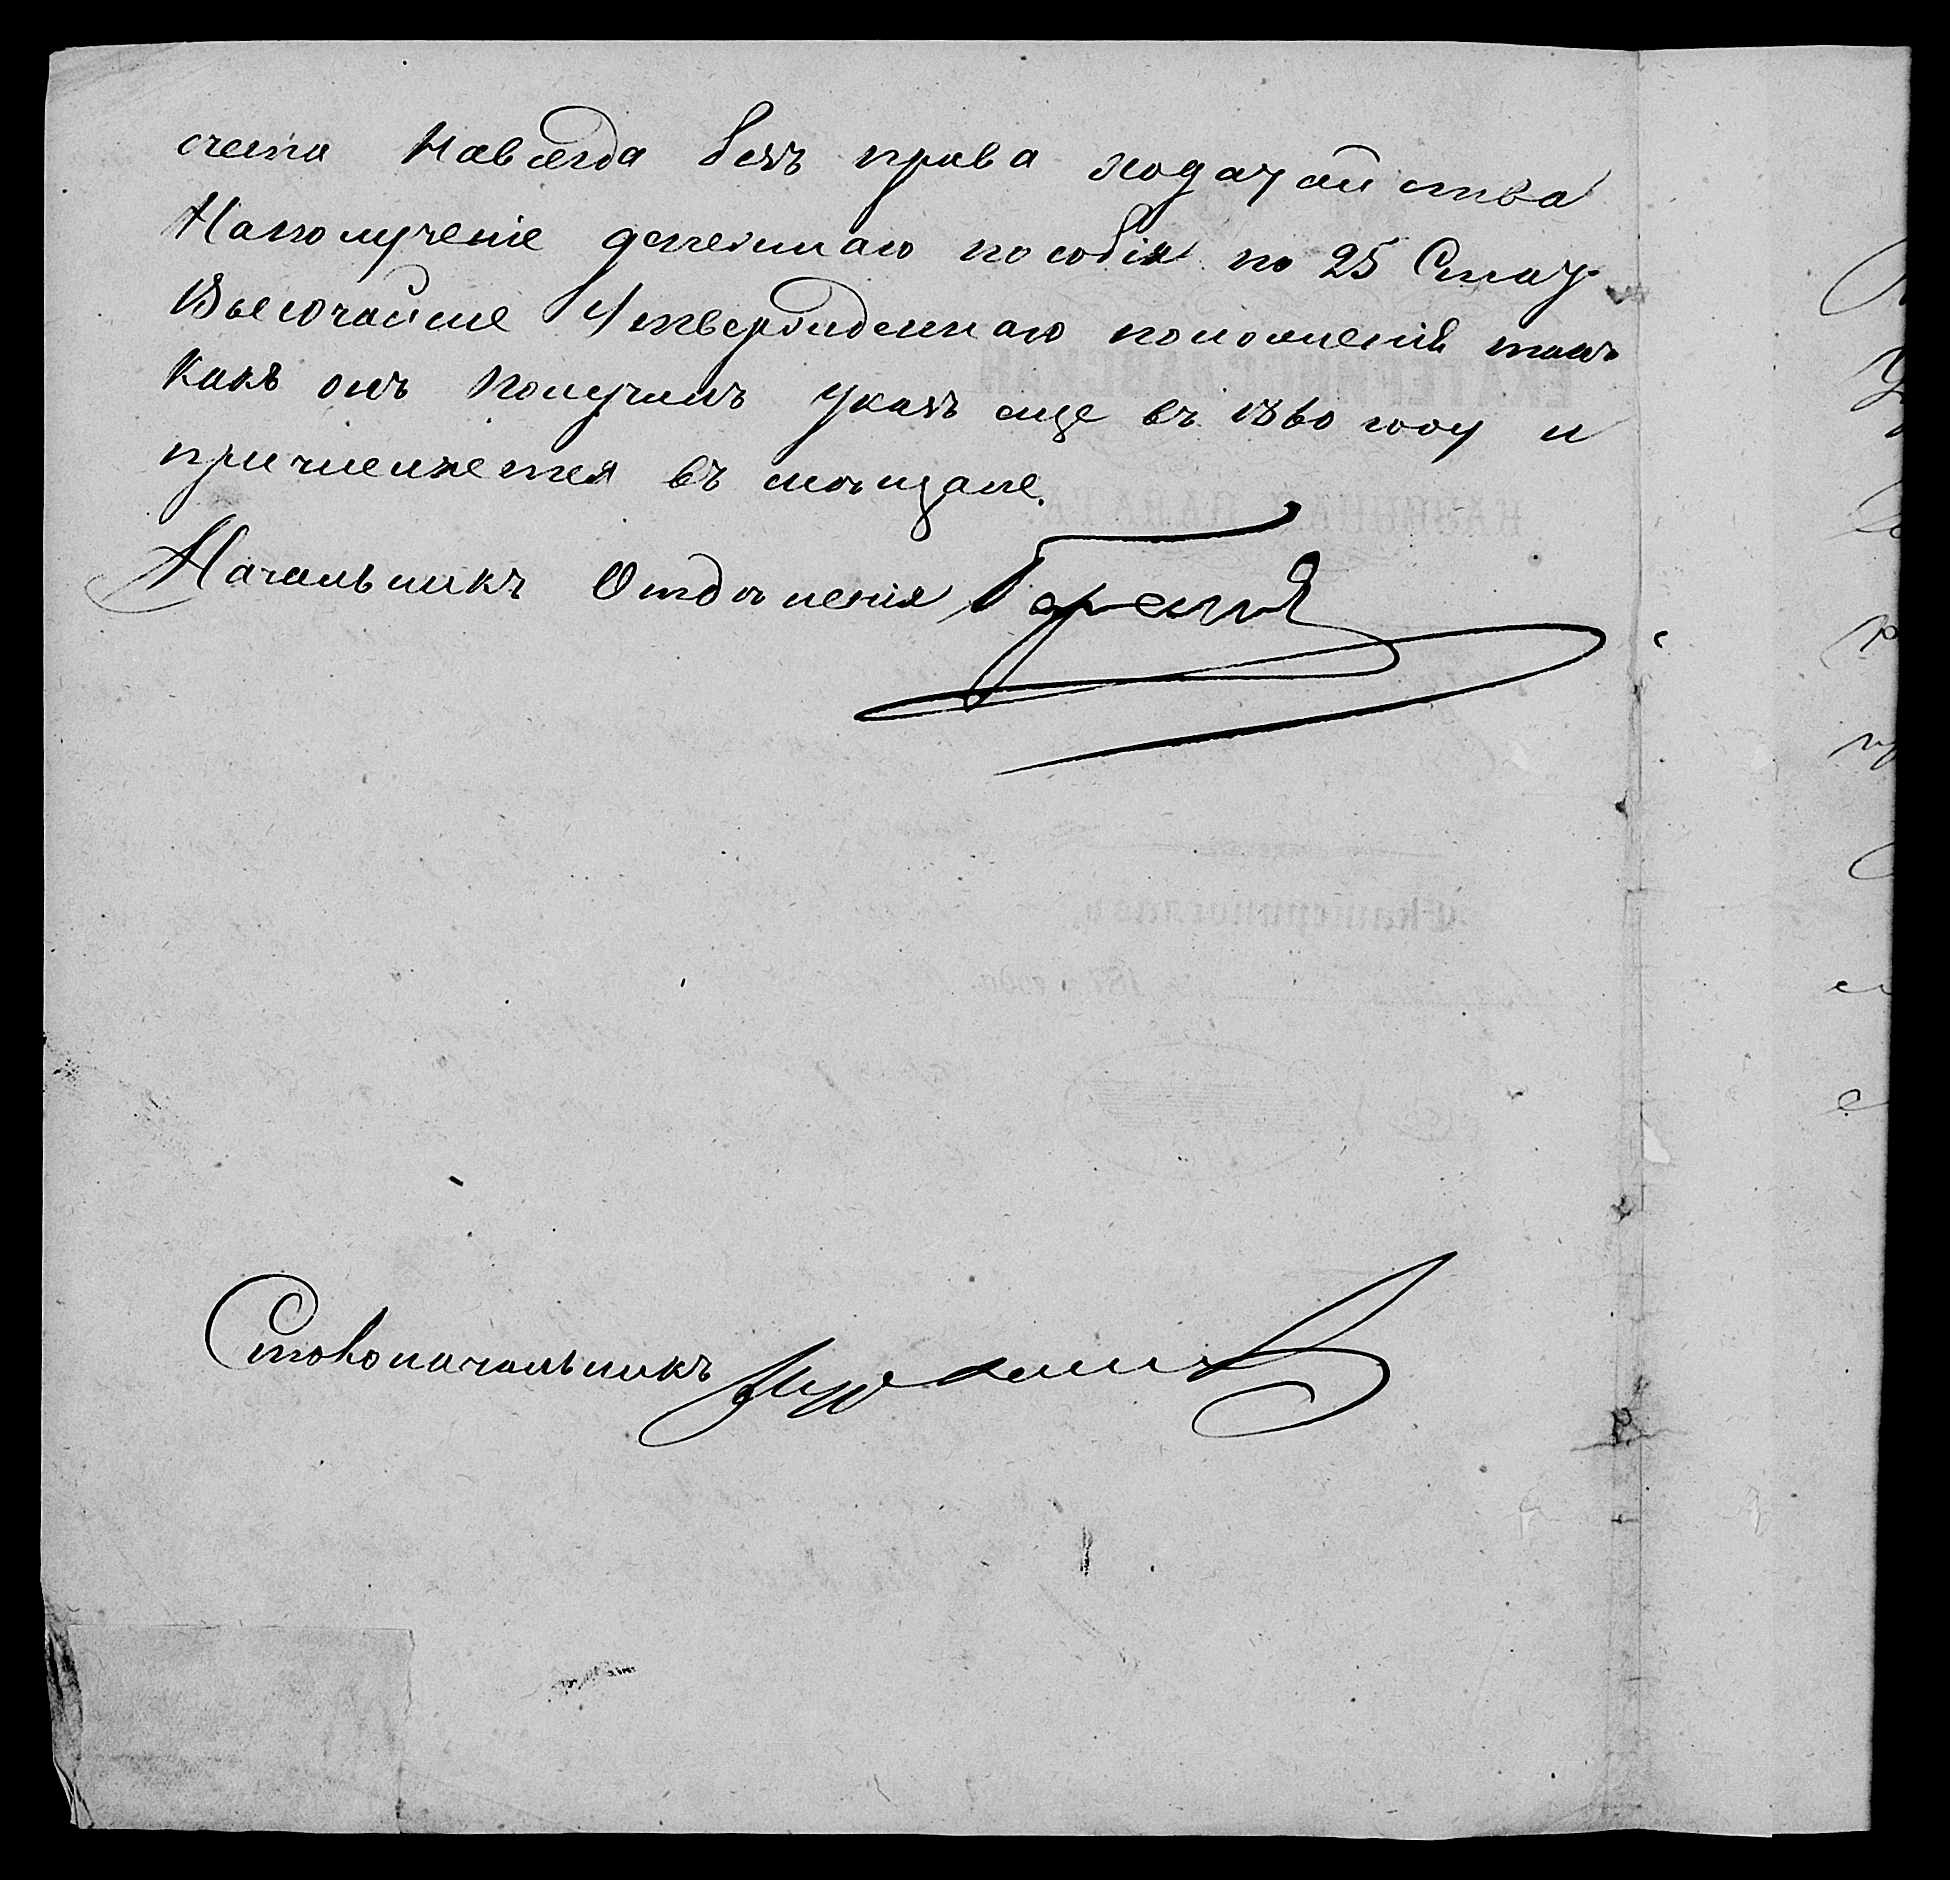 счета Навсегда безъ права ходатайства
Наполученіе денежнаго пособія по 25 Стат.
Высочайше Утвержденнаго положенія такъ
Какъ онъ Получилъ Указъ еще въ 1860 году и
причисляется въ мѣщане.
Начальникъ Отдѣленія
Столоначальникъ
ЕКАТЕРИНОСЛАВСКАЯ
КАЗЕННАЯ ПАЛАТА
Екатеринославъ.
187 года